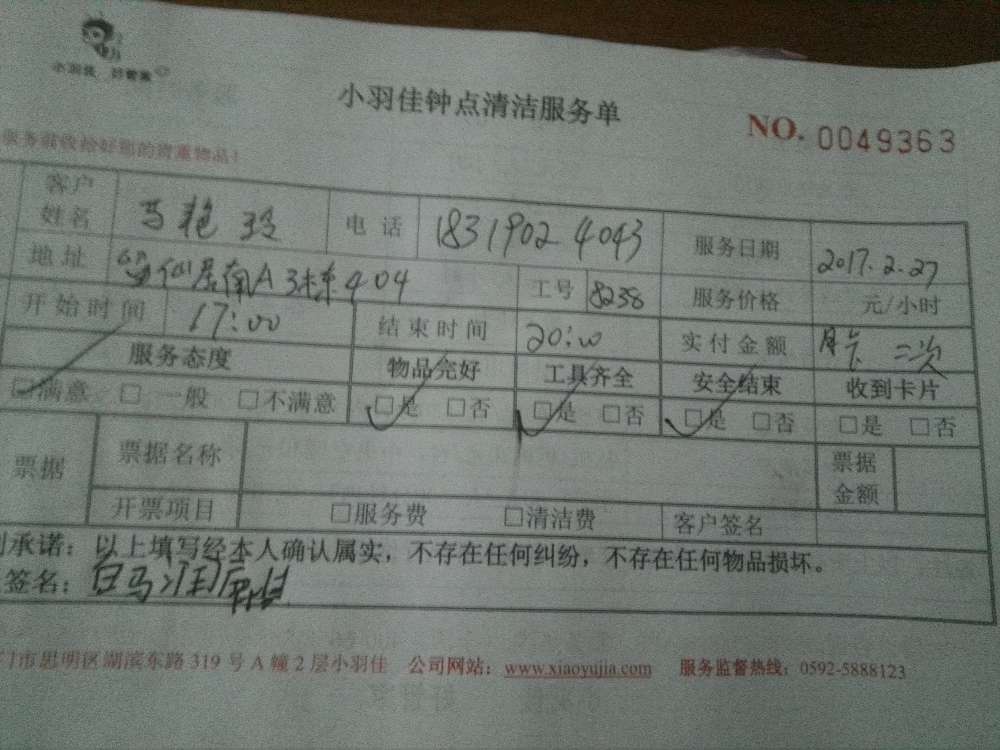 小羽佳 好管家
小羽佳钟点清洁服务单
NO. 0049363
服务前收拾好您的贵重物品!
客户姓名 马艳玲 电话 18319024043 服务日期 2017.2.27
地址 仙居南A3栋404 工号 8238 服务价格 元/小时
开始时间 17:00 结束时间 20:00 实付金额 月卡 二次
服务态度 物品完好 工具齐全 安全结束 收到卡片
□满意 □一般 □不满意 □是 □否 □是 □否 □是 □否 □是 □否
票据 票据名称 票据金额
开票项目 □服务费 □清洁费 客户签名
承诺：以上填写经本人确认属实，不存在任何纠纷，不存在任何物品损坏。
签名：
门市思明区湖滨东路319号A幢2层小羽佳 公司网站：www.xiaoyujia.com 服务监督热线：0592-5888123